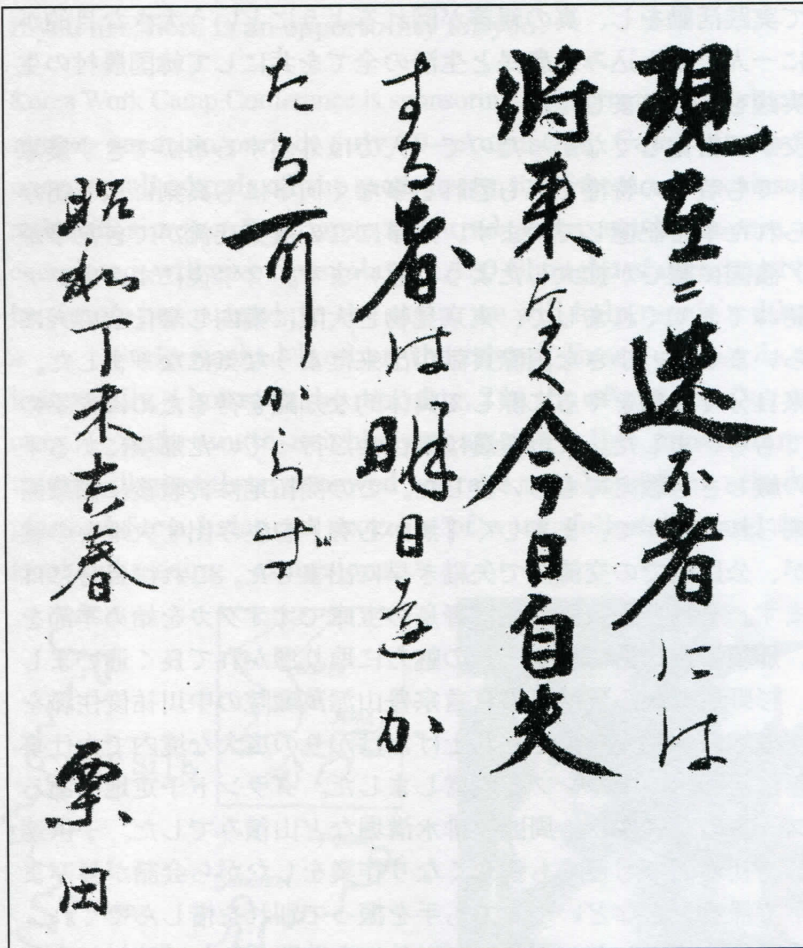 現在ニ迷ふ者には
将来なし今日自失
する者は明日をか
たる可からず
昭和丁未吉春
田